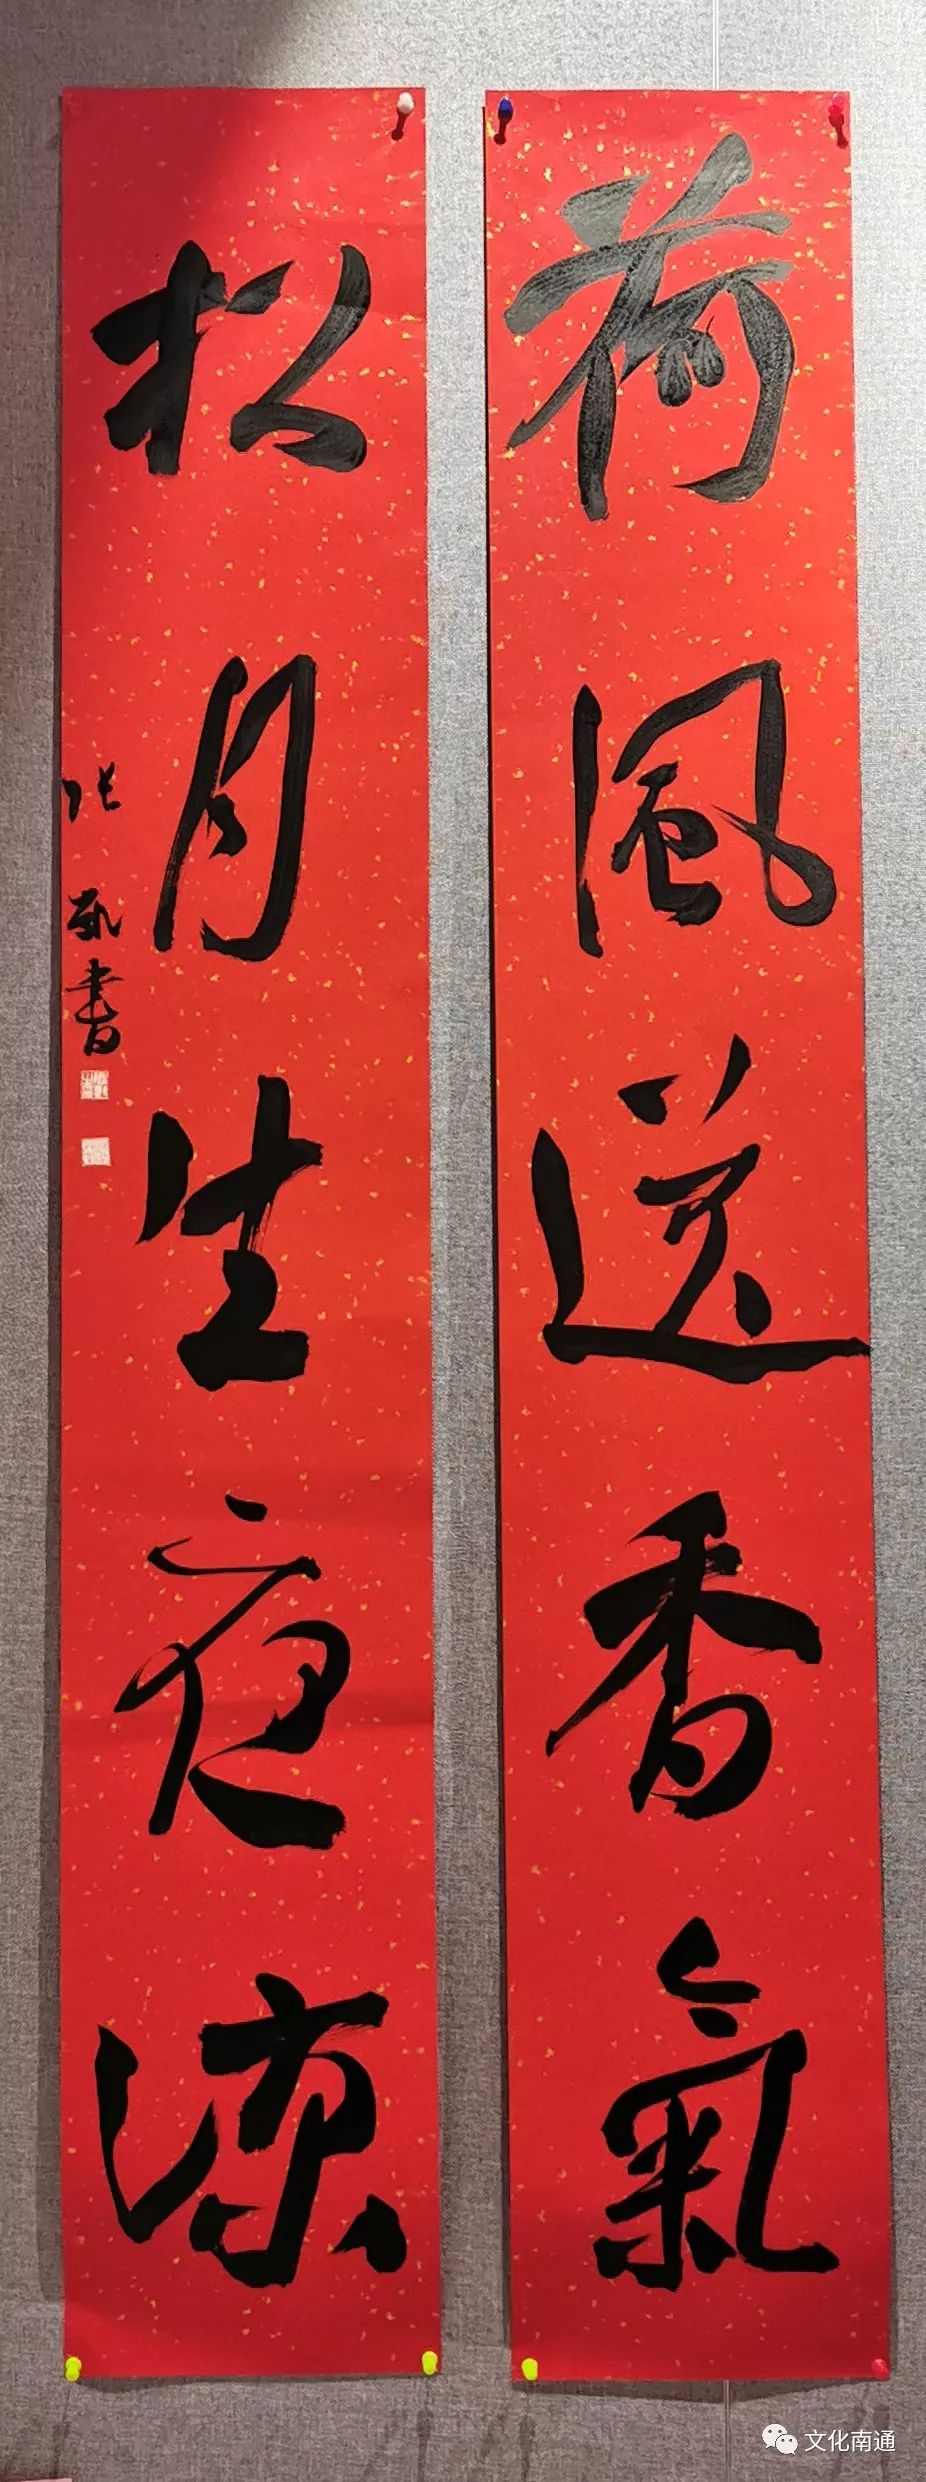 荷風送香氣
松月生夜涼
文化南通